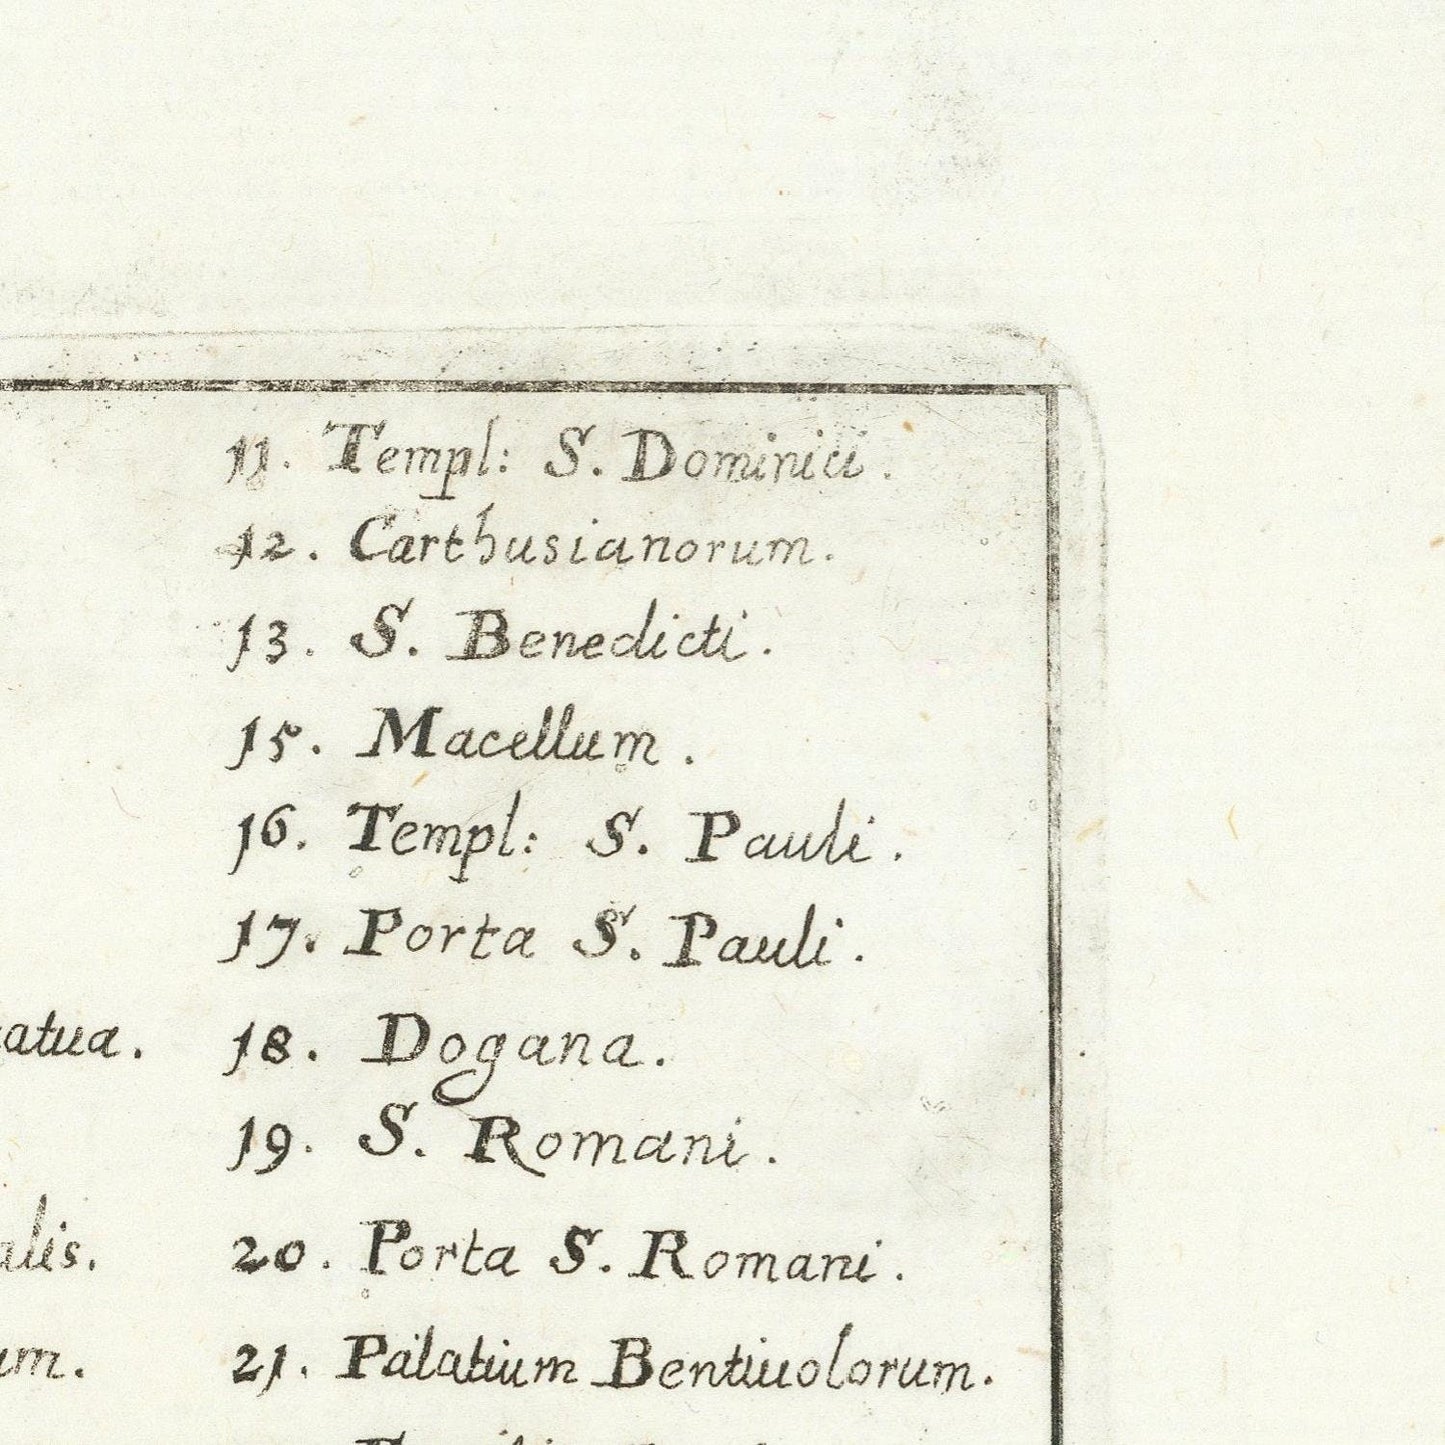 11. Templ: S. Dominici.
12. Carthusianorum.
13. S. Benedicti.
15. Macellum.
16. Templ: S. Pauli.
17. Porta S. Pauli.
18. Dogana.
19. S. Romani.
20. Porta S. Romani.
21. Palatium Bentiuolorum.